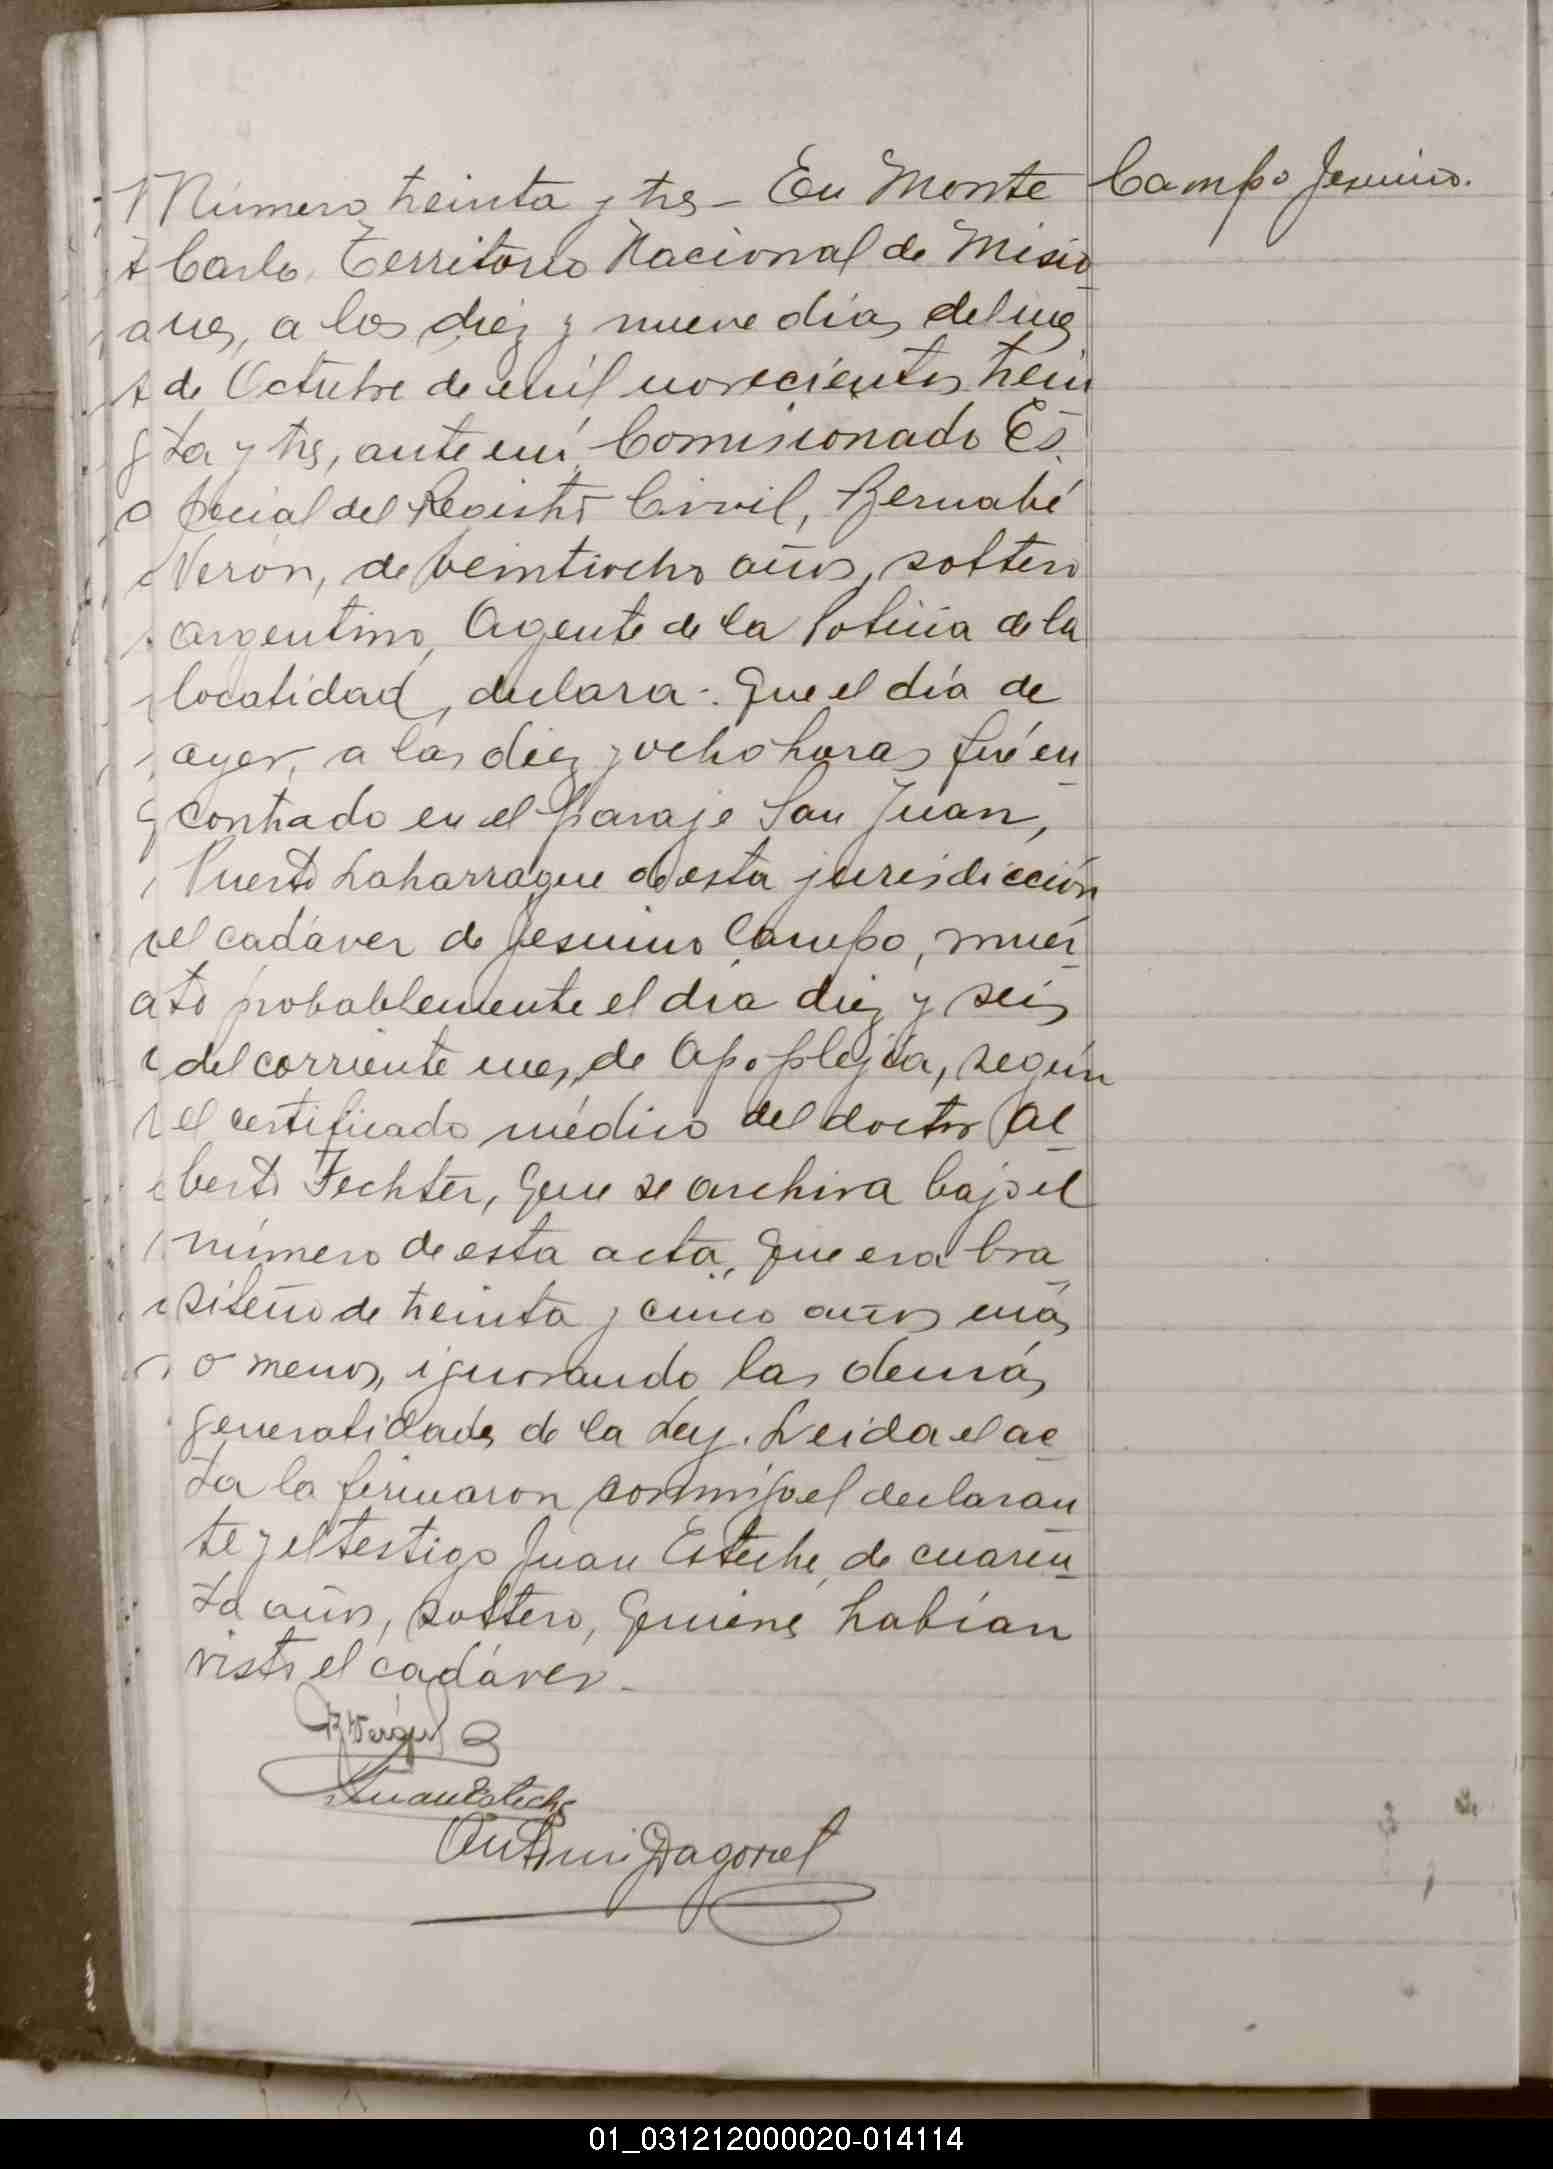 Número treinta y tres - En Monte
Campo Jesuino.
Carlo, Territorio Nacional de Misio
nes, a los diez y nueve días del mes
de Octubre de mil novecientos trein
ta y tres, ante mí Comisionado Es
pecial del Registro Civil, Bernabé
Verón, de veintiocho años, soltero
argentino, Agente de la Policia de la
localidad, declara: Que el día de
ayer, a las diez y ocho horas fué en
contrado en el paraje San Juan,
Puerto Laharrague de esta jurisdicción
el cadáver de Jesuino Campo, muer
to probablemente el día diez y seis
del corriente mes, de Apoplejía, según
el certificado médico del doctor Al
berto Fechter, que se archiva bajo el
número de esta acta, que era bra
sileño de treinta y cinco años más
o menos, ignorando las demás
generalidades de la Ley. Leida el ac
ta la firmaron conmigo el declaran
te y el testigo Juan Esteche, de cuaren
ta años, soltero, quienes habían
visto el cadáver.-
Juan Esteche
01_031212000020-014114